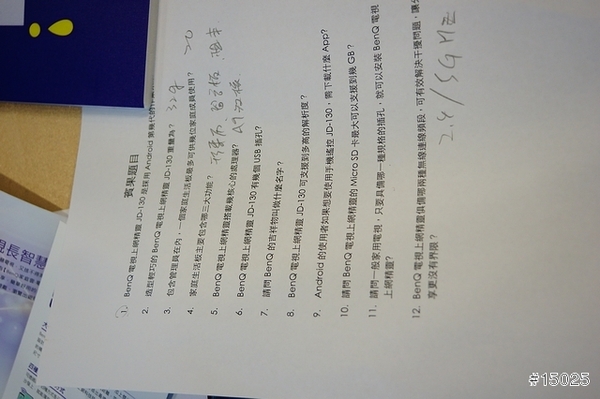 賓果題目
1. BenQ 電視上網精靈 JD-130 是採用 Android 第幾代的
2. 造型輕巧的 BenQ 電視上網精靈 JD-130 重量為? 32g
3. 包含管理員在內,一個家庭生活板最多可供幾位家庭成員使用? 20
4. 家庭生活板主要包含哪三大功能? 留言板
5. BenQ 電視上網精靈搭載幾核心的處理器?
6. BenQ 電視上網精靈 JD-130 有幾個 USB 插孔?
7. 請問 BenQ 的吉祥物叫做什麼名字?
8. BenQ 電視上網精靈 JD-130 可支援到多高的解析度?
9. Android 的使用者如果想要使用手機遙控 JD-130,需下載什麼 App?
10. 請問 BenQ 電視上網精靈的 Micro SD 卡最大可以支援到幾 GB?
11. 請問一般家用電視,只要具備哪一種規格的插孔,就可以安裝 BenQ 電視
上網精靈?
12. BenQ 電視上網精靈俱備哪兩種無線連線頻段,可有效解決干擾問題,讓分
享更沒有界限?
2.4/5G Hz
視長智慧
#15025